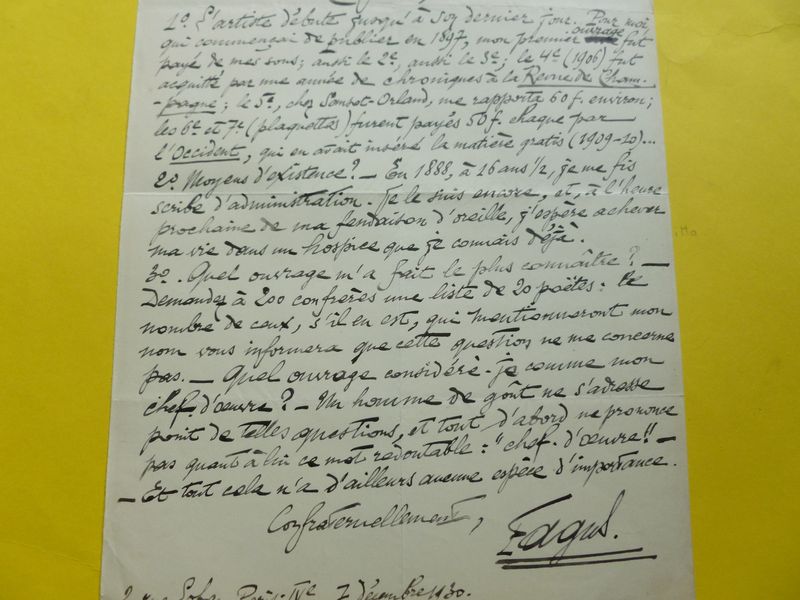 1º. L'artiste débute jusqu'à son dernier jour. Pour moi,
qui commençai de publier en 1897, mon premier ouvrage fut
payé de mes sous; aussi le 2e, aussi le 3e; le 4e (1906) fut
acquitté par une année de chroniques à la Revue de Cham-
-pagne; le 5e, chez Sansot-Orland, me rapporta 60 f. environ;
les 6e et 7e (plaquettes) furent payés 50 f. chaque par
l'Occident, qui en avait inséré la matière gratis (1909-10)...
2º. Moyens d'existence? — En 1888, à 16 ans 1/2, je me fis
scribe d'administration. Je le suis encore, et, à l'heure
prochaine de ma fendaison d'oreille, j'espère achever
ma vie dans un hospice que je connais déjà.
3º. Quel ouvrage m'a fait le plus connaître? —
Demandez à 200 confrères une liste de 20 poëtes: le
nombre de ceux, s'il en est, qui mentionneront mon
nom vous informera que cette question ne me concerne
pas. — Quel ouvrage considéré-je comme mon
chef-d'œuvre? — Un homme de goût ne s'adresse
point de telles questions, et tout d'abord ne prononce
pas quant à lui ce mot redoutable: "chef-d'œuvre"! —
— Et tout cela n'a d'ailleurs aucune espèce d'importance.
Confraternellement,
Fagus.
rue Paris-IVe 7 Décembre 1930.